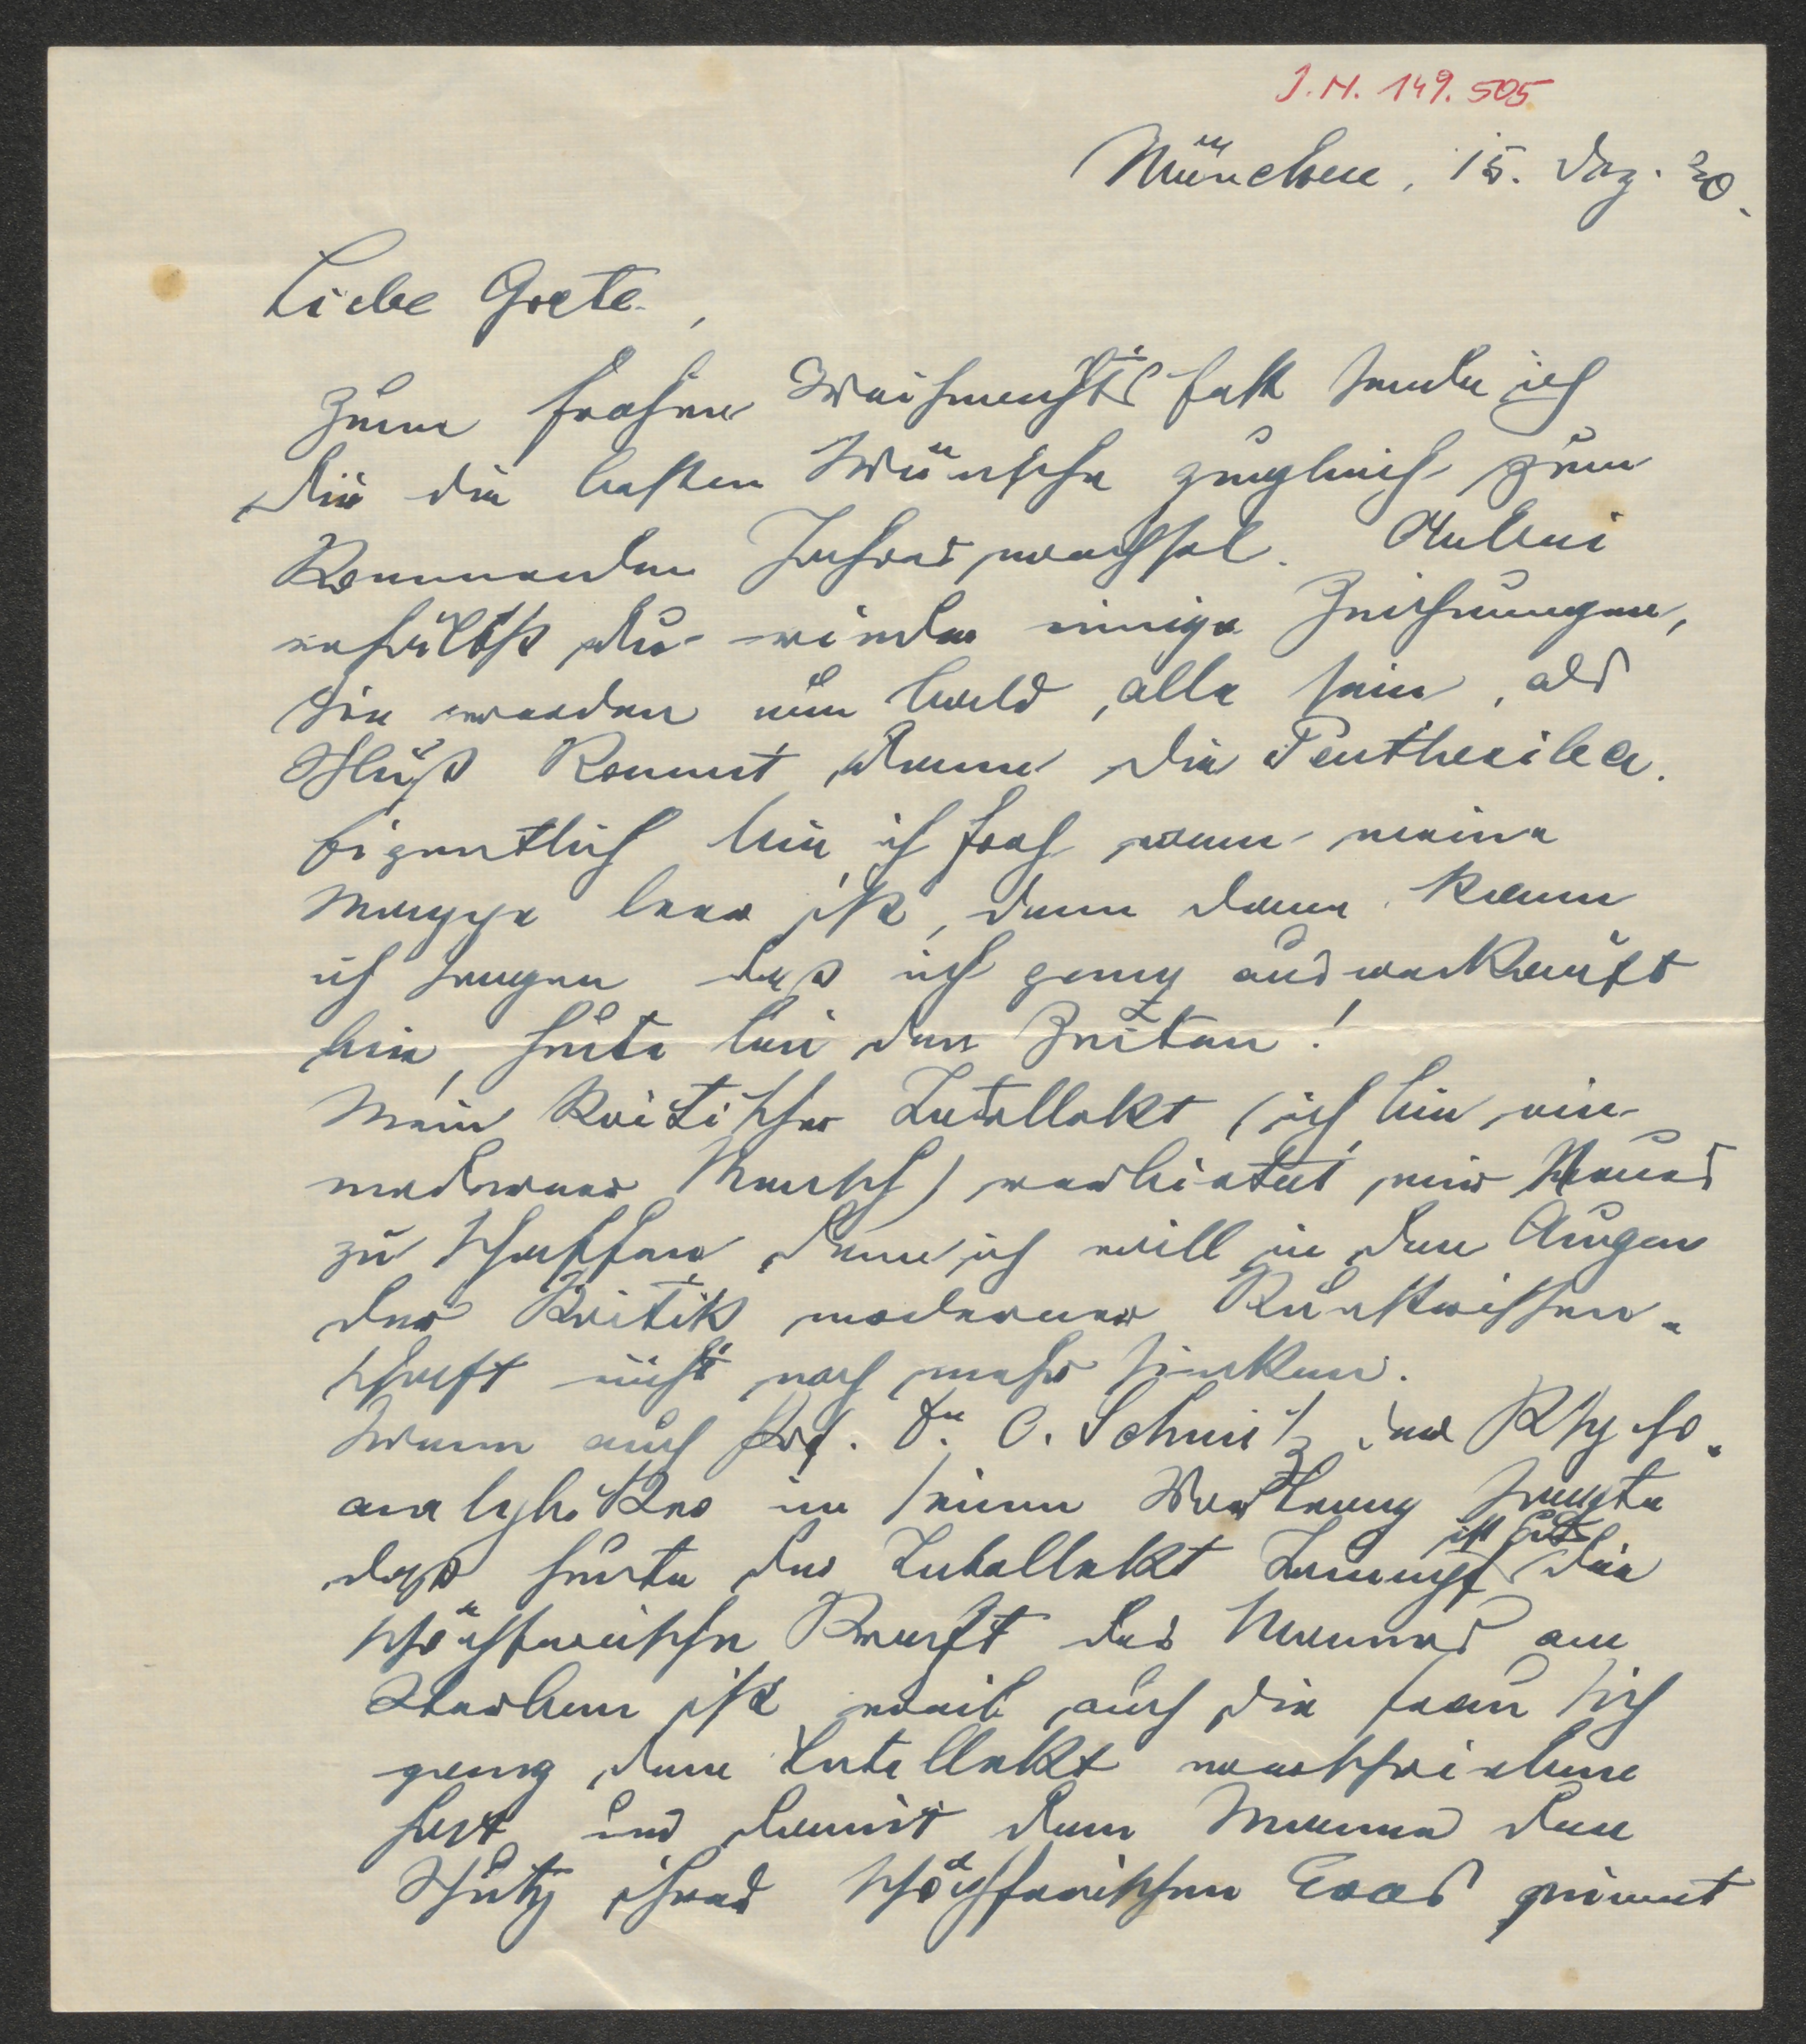 J.N. 149.505
München, 15. Dez. 30.
Liebe Grete,
Zum frohen Weihnachtsfest sende ich
dir die besten Wünsche zugleich zum
kommenden Jahreswechsel. Anbei
erhältst du wieder einige Zeichnungen,
sie werden nun bald alle sein, als
Schluß kommt dann die Penthesilea.
Eigentlich bin ich froh wenn meine
Mappe leer ist, denn dann kann
ich sagen daß ich ganz ausverkauft
bin, heute bei den Zeiten!
Mein kritischer Intellekt (ich bin ein
moderner Mensch) verbietet mir Neues
zu schaffen denn ich will in den Augen
der Kritik moderner Kunstwissen-
schaft nicht noch mehr sinken.
Wenn auch Prof. Dr. O. Schmitz der Psycho-
analytiker in seinem Vortrag sagte
daß heute der Intellekt Trumpf ist die
schöpferische Kraft des Mannes am
Sterben ist weil auch die Frau sich
ganz dem Intellekt verschrieben
hat und damit dem Manne den
Schutz ihres schöpferischen Eros nimmt